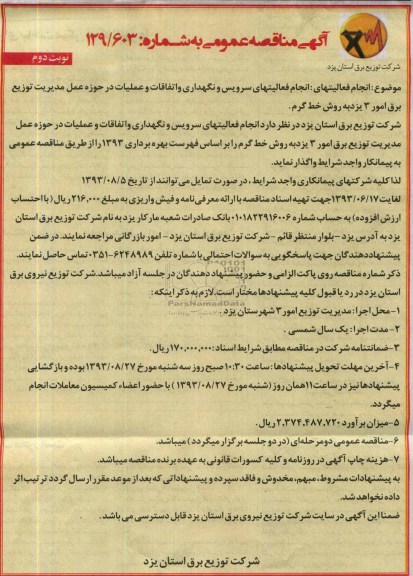 آگهی مناقصه عمومی به شماره: ۱۲۹/۶۰۳
شرکت توزیع برق استان یزد
نوبت دوم
موضوع: انجام فعالیتهای: انجام فعالیتهای سرویس و نگهداری و اتفاقات و عملیات در حوزه عمل مدیریت توزیع
برق امور ۳ یزد به روش خط گرم.
شرکت توزیع برق استان یزد در نظر دارد انجام فعالیتهای سرویس و نگهداری و اتفاقات و عملیات در حوزه عمل
مدیریت توزیع برق امور ۳ یزد به روش خط گرم را بر اساس فهرست بهره برداری ۱۳۹۳ را از طریق مناقصه عمومی
به پیمانکار واجد شرایط واگذار نماید.
لذا کلیه شرکتهای پیمانکاری واجد شرایط، در صورت تمایل می توانند از تاریخ ۱۳۹۳/۰۸/۵
لغایت ۱۳۹۳/۰۶/۱۷ جهت تهیه اسناد مناقصه با ارائه معرفی نامه و فیش واریزی به مبلغ ۲۱۶,۰۰۰ ریال (با احتساب
ارزش افزوده) به حساب شماره ۰۱۰۱۸۲۲۹۱۶۰۰۶ بانک صادرات شعبه مارکار یزد به نام شرکت توزیع برق استان
یزد به آدرس یزد - بلوار منتظر قائم - شرکت توزیع برق استان یزد - امور بازرگانی مراجعه نمایند. در ضمن
پیشنهاددهندگان جهت پاسخگویی به سوالات احتمالی با شماره تلفن ۶۲۴۸۹۸۹-۰۳۵۱ تماس حاصل نمایند.
ذکر شماره مناقصه روی پاکت الزامی و حضور پیشنهاد دهندگان در جلسه آزاد میباشد. شرکت توزیع نیروی برق
استان یزد در رد یا قبول کلیه پیشنهادها مختار است. لازم به ذکر اینکه:
۱- محل اجرا: مدیریت توزیع امور ۳ شهرستان یزد.
۲- مدت اجرا: یک سال شمسی.
۳- ضمانتنامه شرکت در مناقصه مطابق شرایط اسناد: ۱۷۰,۰۰۰,۰۰۰ ریال.
۴- آخرین مهلت تحویل پیشنهادها: ساعت ۱۰:۳۰ صبح روز سه شنبه مورخ ۱۳۹۳/۰۸/۲۷ بوده و بازگشایی
پیشنهادها نیز در ساعت ۱۱ همان روز (شنبه مورخ ۱۳۹۳/۰۸/۲۷) با حضور اعضاء کمیسیون معاملات انجام
میگردد.
۵- میزان برآورد ۲,۳۷۴,۴۸۷,۷۲۰ ریال.
۶- مناقصه عمومی دو مرحله ای (در دو جلسه برگزار میگردد) میباشد.
۷- هزینه چاپ آگهی در روزنامه و کلیه کسورات قانونی به عهده برنده مناقصه میباشد.
به پیشنهادات مشروط، مبهم، مخدوش و فاقد سپرده و پیشنهاداتی که بعد از موعد مقرر ارسال گردد ترتیب اثر
داده نخواهد شد.
ضمنا این آگهی در سایت شرکت توزیع نیروی برق استان یزد قابل دسترسی می باشد.
شرکت توزیع برق استان یزد